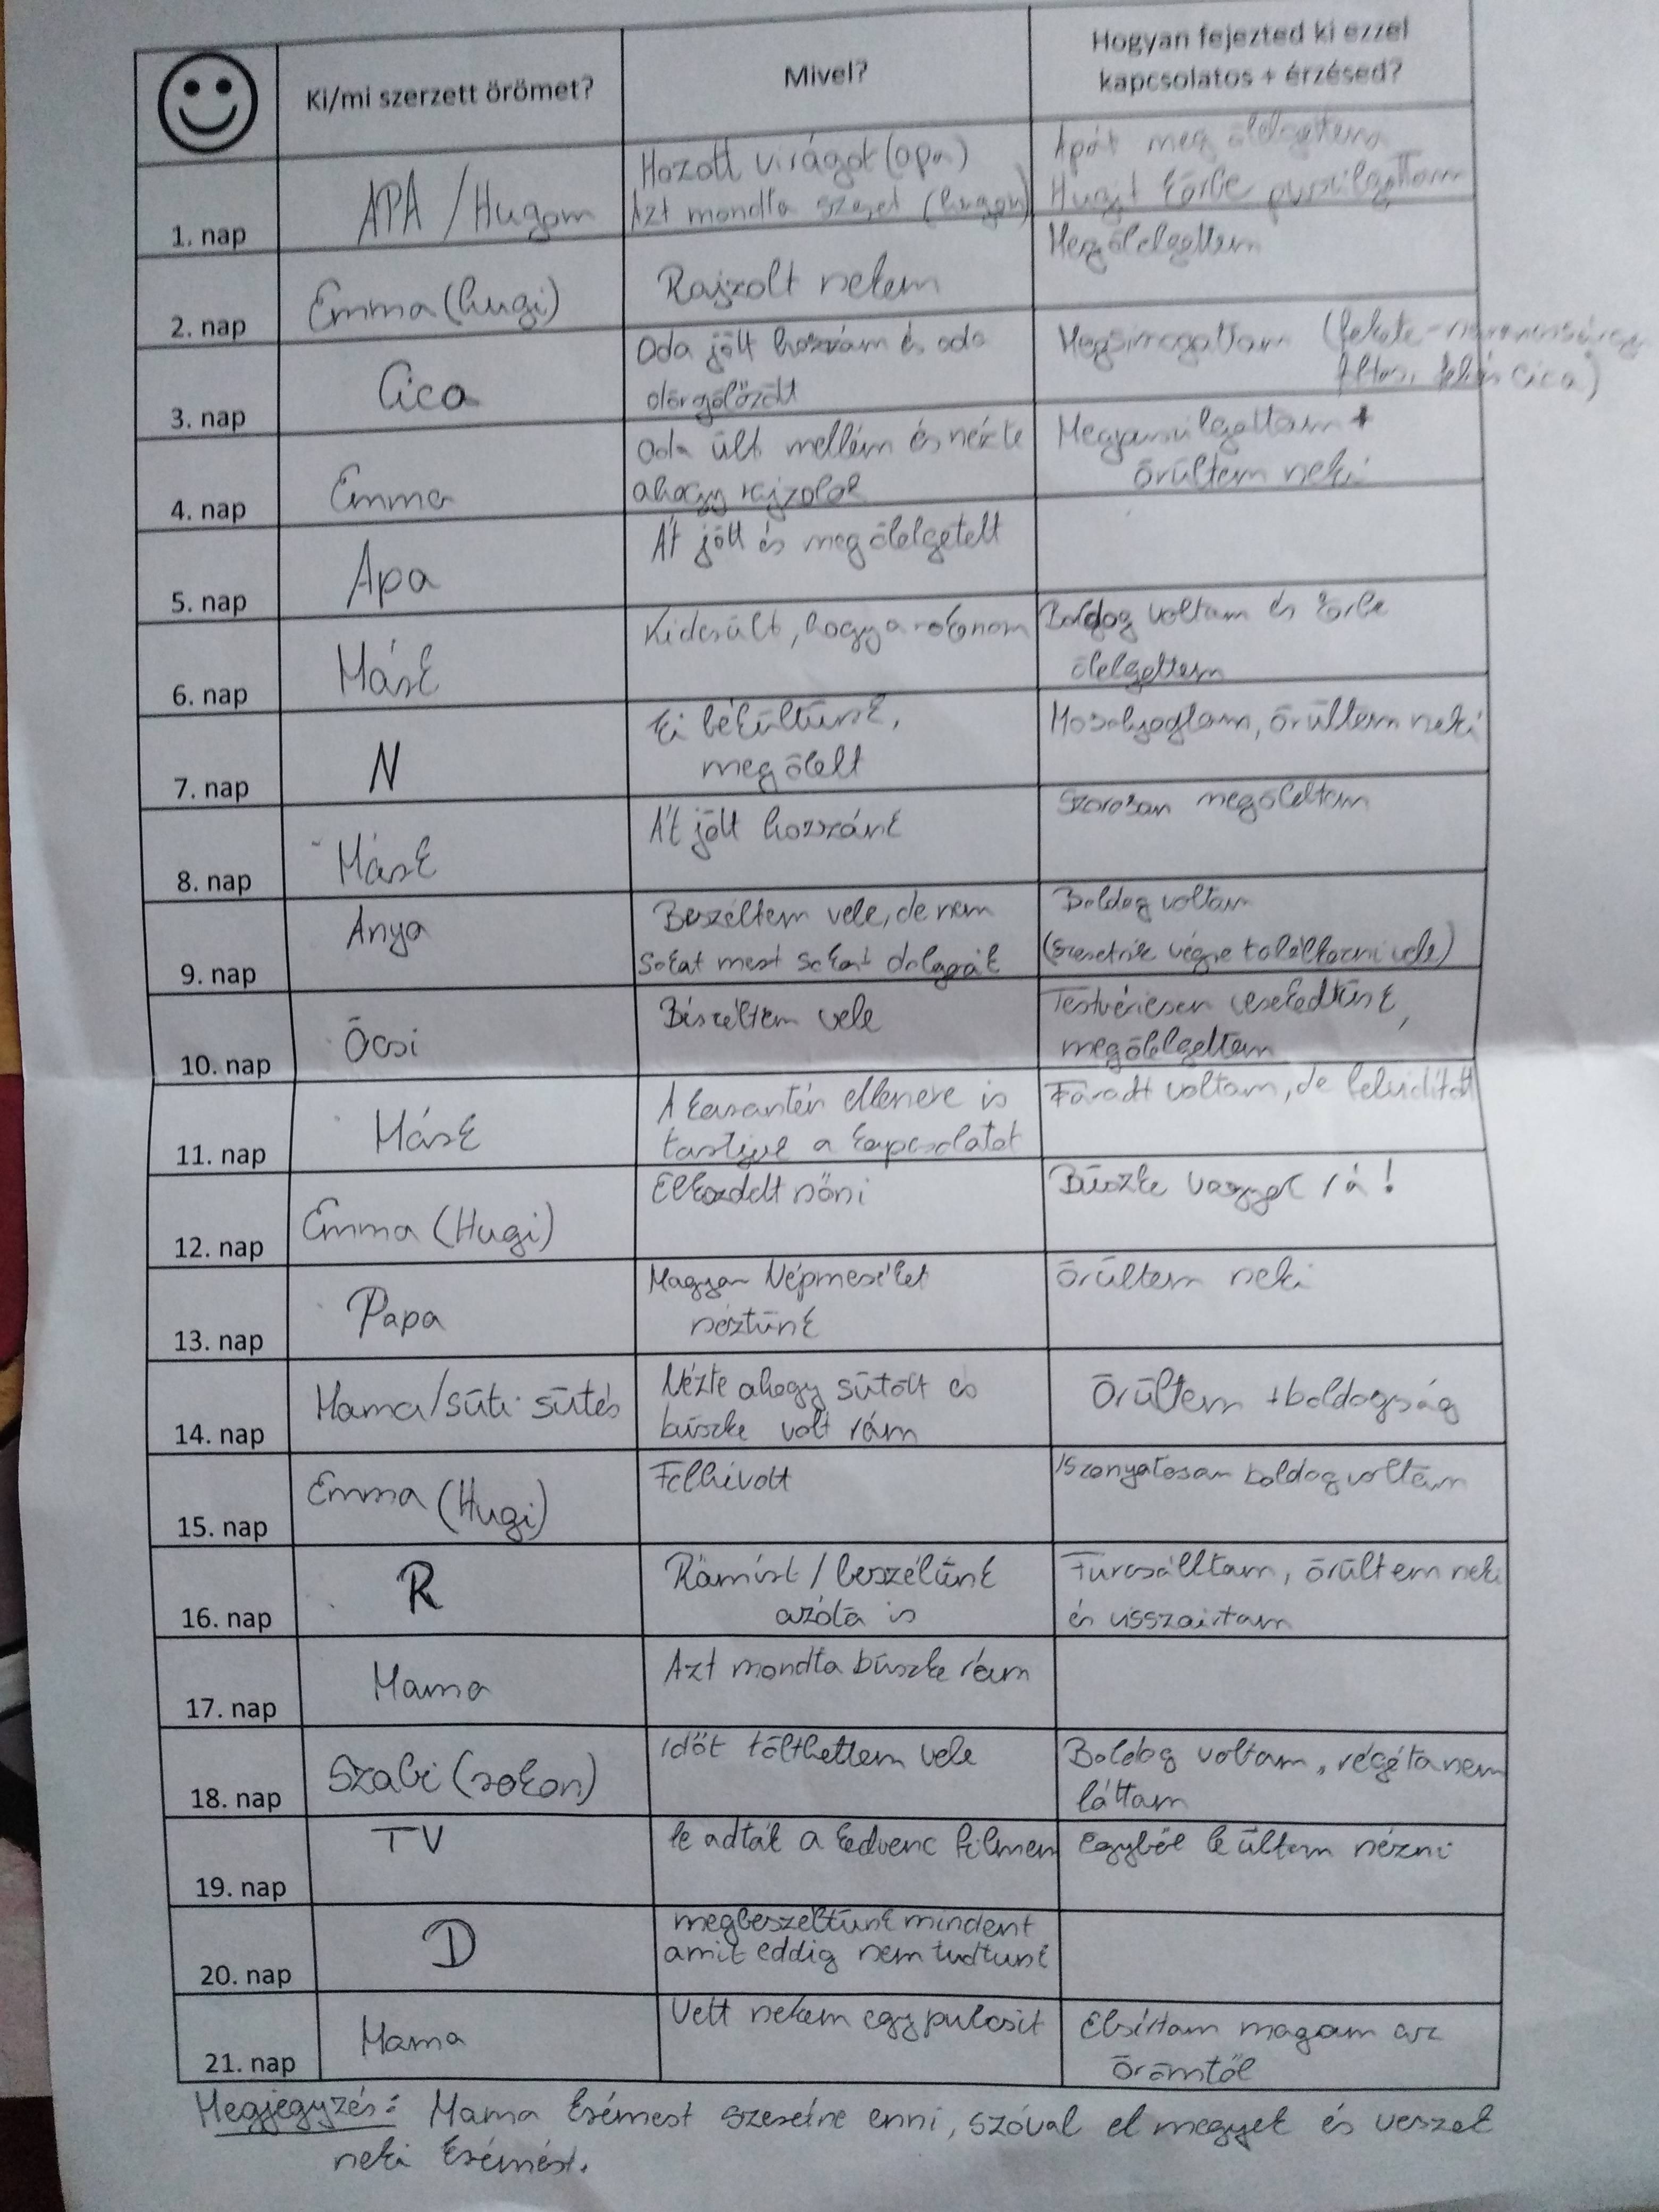 Ki/mi szerzett örömet?
Mivel?
Hogyan fejezted ki ezzel
kapcsolatos + érzésed?
1. nap
APA / Hugom
Hozott virágot (apa)
Azt mondta szeret (hugom)
Apát meg ölelgettem
Hugit körbe puszilgattam
2. nap
Emma (hugi)
Rajzolt nekem
Megölelgettem
3. nap
Cica
Oda jött hozzám és oda
dörgölőzött
Megsimogattam (fekete-narancssárga
foltos, fehér cica)
4. nap
Emma
Oda ült mellém és nézte
ahogy rajzolok
Megpuszilgattam +
örültem neki
5. nap
Apa
Át jött és meg ölelgetett
6. nap
Márk
Kiderült, hogy a rokonom
Boldog voltam és körbe
ölelgettem
7. nap
N
Ki békültünk,
meg ölelt
Mosolyogtam, örültem neki
8. nap
Márk
Át jött hozzánk
Szorosan megöleltem
9. nap
Anya
Beszéltem vele, de nem
sokat mert sokat dolgozik
Boldog voltam
(szeretnék végre találkozni vele)
10. nap
Öcsi
Beszéltem vele
Testvériesen veszekedtünk,
megölelgettem
11. nap
Márk
A karantén ellenére is
tartjuk a kapcsolatot
Fáradt voltam, de felvidított
12. nap
Emma (Hugi)
Elkezdett nőni
Büszke vagyok rá!
13. nap
Papa
Magyar Népmeséket
néztünk
örültem neki
14. nap
Mama/süti sütés
Nézte ahogy sütök és
büszke volt rám
Örültem + boldogság
15. nap
Emma (Hugi)
Felhívott
Iszonyatosan boldog voltam
16. nap
R
Rámírt / beszélünk
azóta is
Furcsálltam, örültem neki
és visszaírtam
17. nap
Mama
Azt mondta büszke rám
18. nap
Szabi (rokon)
Időt tölthettem vele
Boldog voltam, régóta nem
láttam
19. nap
TV
le adták a kedvenc filmem
Egyből le ültem nézni
20. nap
D
megbeszéltünk mindent
amit eddig nem tudtunk
21. nap
Mama
Vett nekem egy pulcsit
Elsírtam magam az
örömtől
Megjegyzés: Mama krémest szeretne enni, szóval el megyek és veszek
neki krémést.